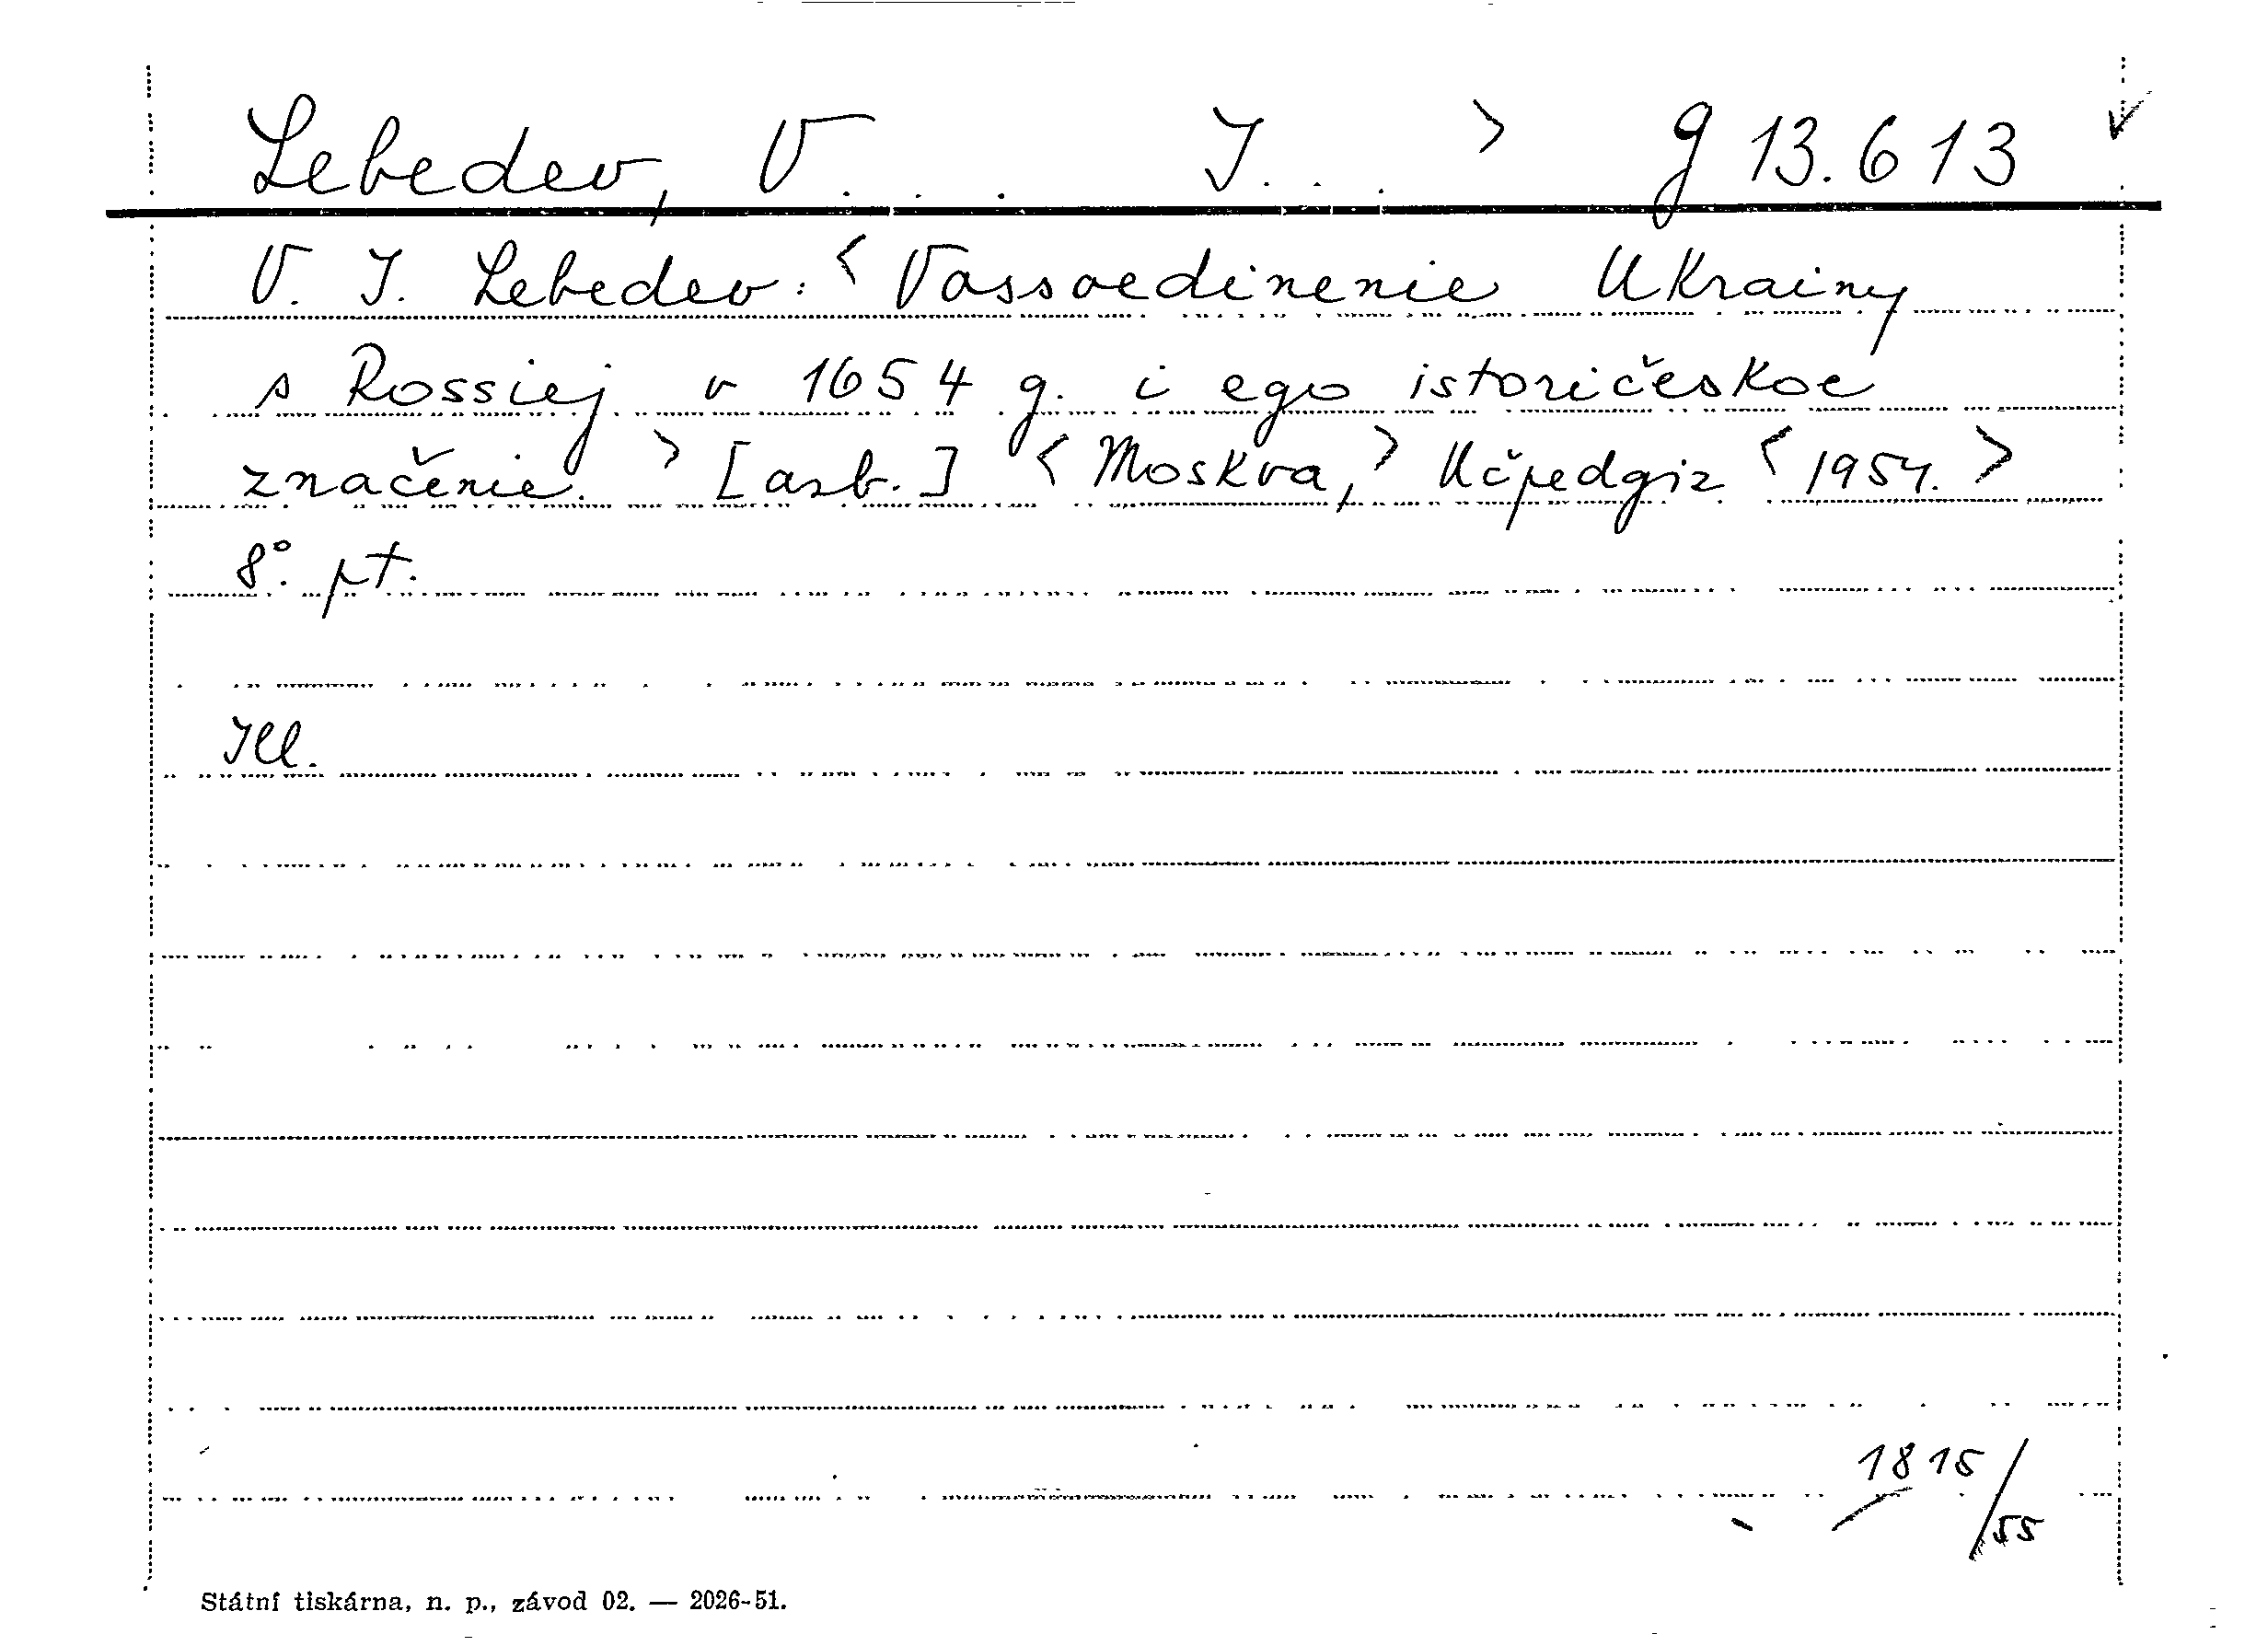 Lebedev, V... I... > g 13.613
V. I. Lebedev: < Vossoedinenie Ukrainy
s Rossiej v 1654 g. i ego istoričeskoe
značenie. > [azb.] < Moskva, > Učpedgiz < 1954. >
8°. pt.
Ill.
1815/55
Státní tiskárna, n. p., závod 02. — 2026-51.